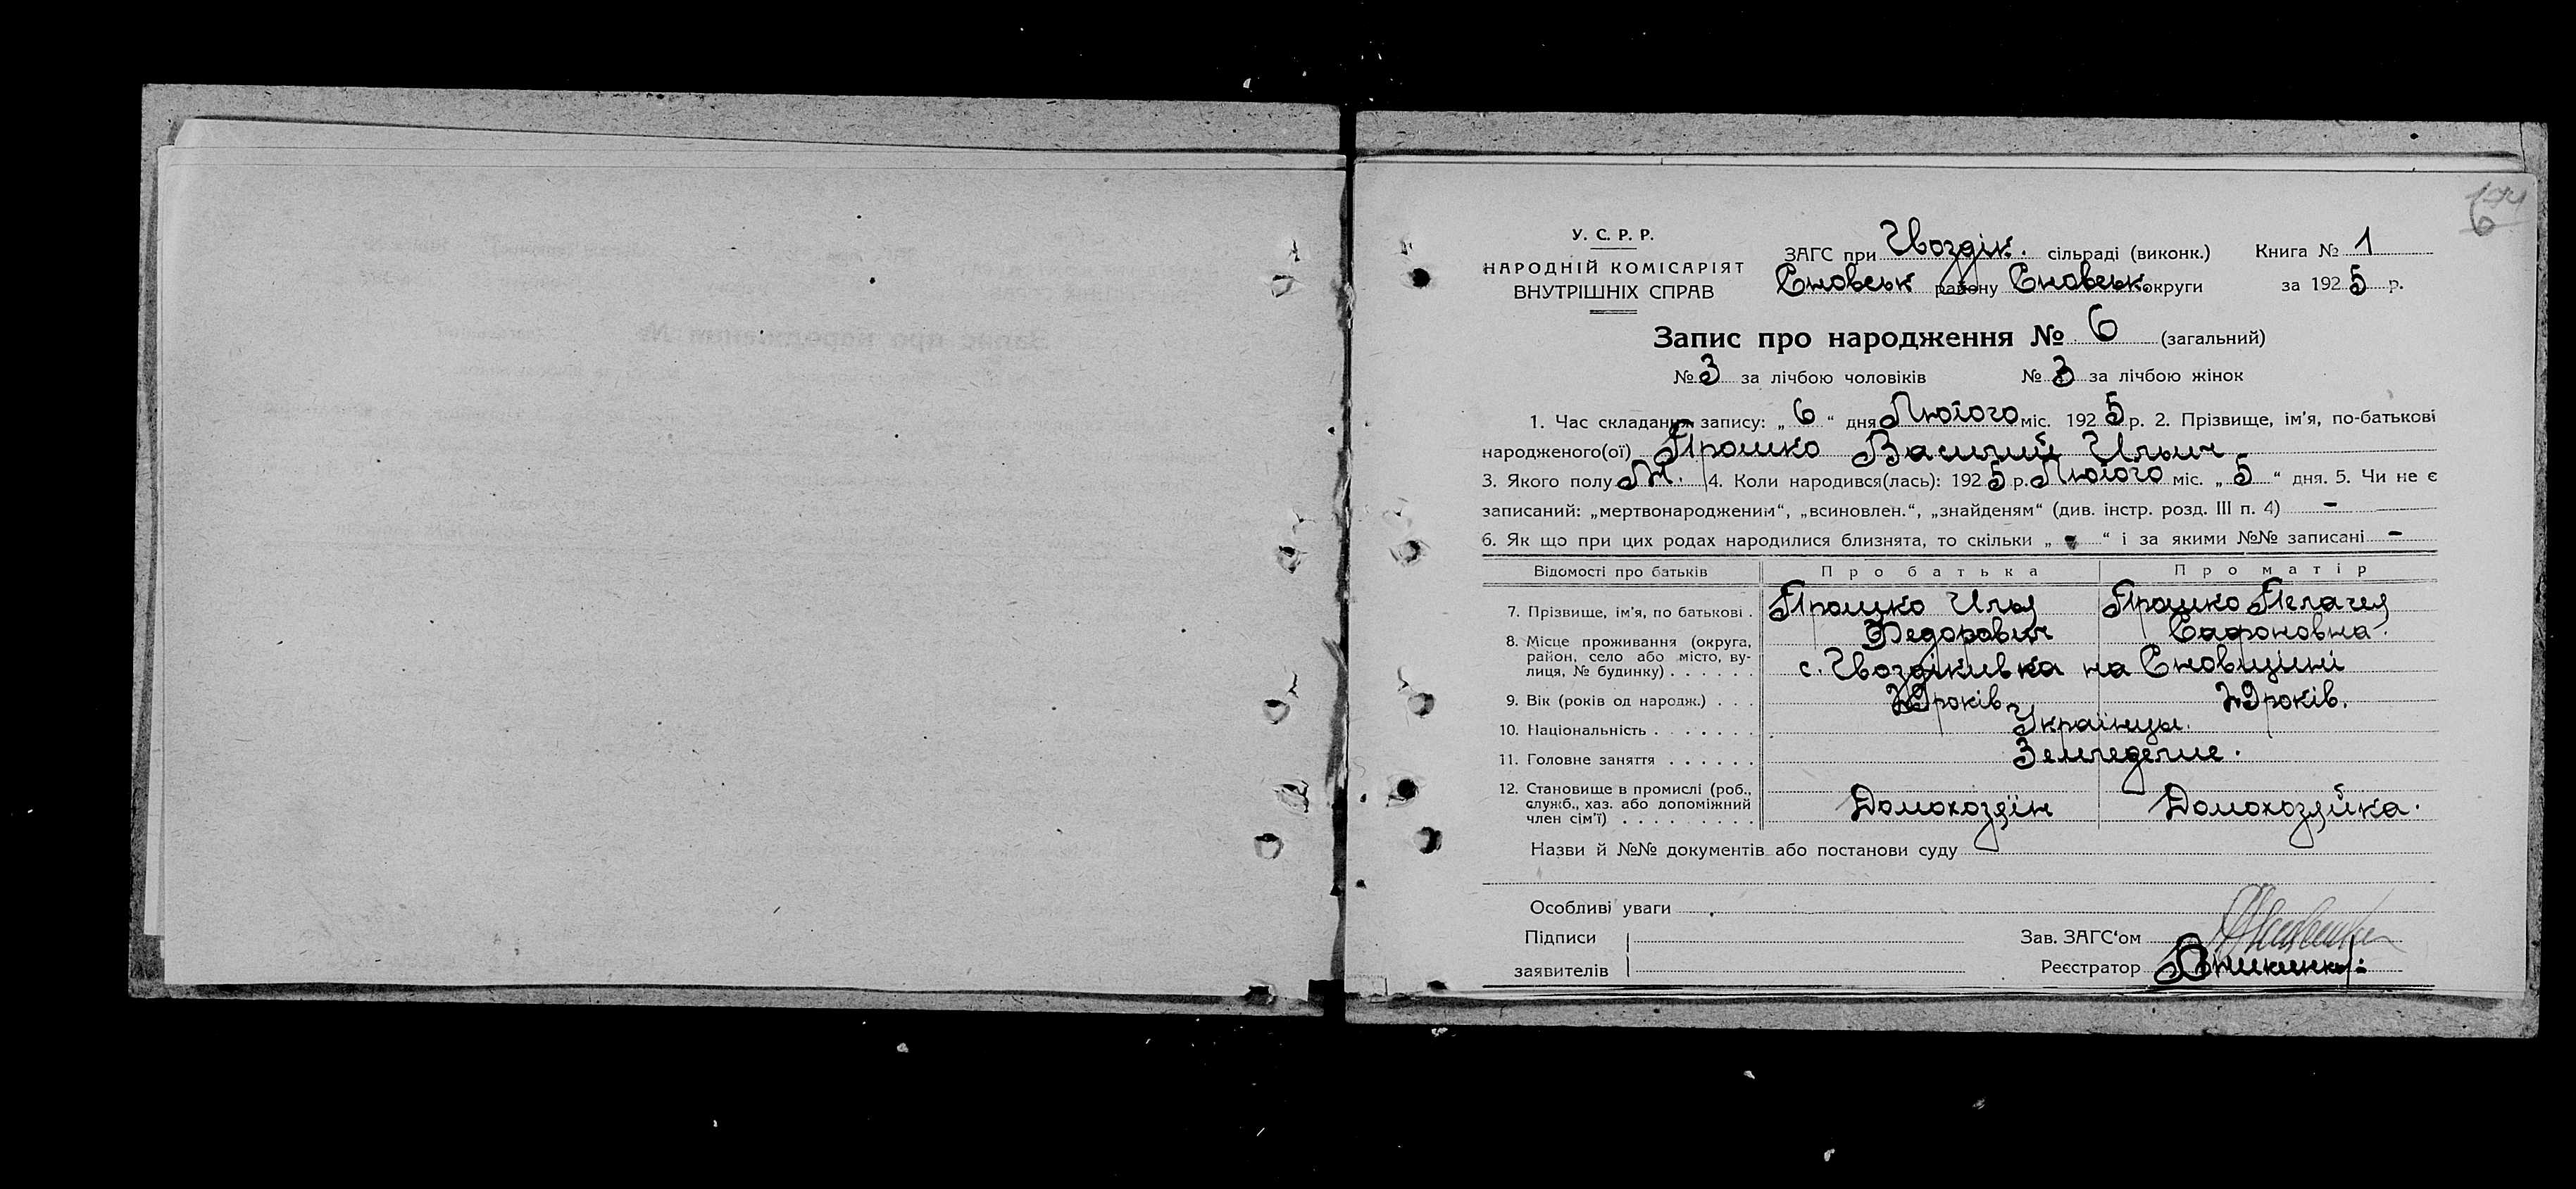 У. С. Р. Р.
НАРОДНІЙ КОМІСАРІЯТ
ВНУТРІШНІХ СПРАВ
ЗАГС при Гвоздік. сільраді (виконк.) Книга № 1
Сновськ району Сновськ. округи за 1925 р.
Запис про народження № 6 (загальний)
№ 3 за лічбою чоловіків № 3 за лічбою жінок
1. Час складання запису: „ 6 “ дня Лютого міс. 1925 р. 2. Прізвище, ім'я, по-батькові
народженого(ої) Ярошко Василий Ильич
3. Якого полу М. 4. Коли народився(лась): 1925 р. Лютого міс. „ 5 “ дня. 5. Чи не є
записаний: „мертвонародженим“, „всиновлен.“, „знайденям“ (див. інстр. розд. III п. 4) -
6. Як що при цих родах народилися близнята, то скільки „ - “ і за якими №№ записані -
Відомості про батьків Про батька Про матір
7. Прізвище, ім'я, по батькові . Ярошко Илья Ярошко Пелагея
Федорович Сафоновна.
8. Місце проживання (округа,
район, село або місто, ву-
лиця, № будинку) . . . . . . с. Гвоздіківка на Сновщині
9. Вік (років од народж.) . . . років років.
10. Національність . . . . . . . Українцы.
11. Головне заняття . . . . . . Земледелие.
12. Становище в промислі (роб.,
служб., хаз. або допоміжний
член сім'ї) . . . . . . . . . Домохозяїн Домохозяйка.
Назви й №№ документів або постанови суду
Особливі уваги
Підписи Зав. ЗАГС'ом
заявителів Реєстратор